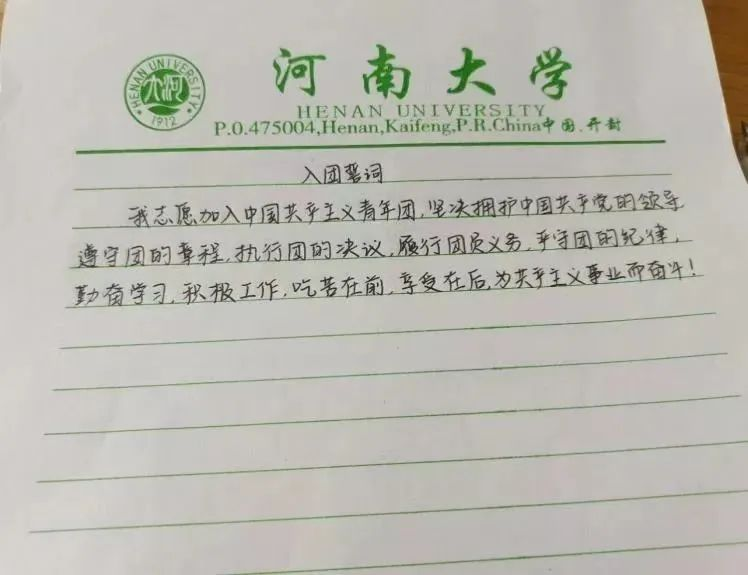 HENAN UNIVERSITY
大河
1912
河南大学
HENAN UNIVERSITY
P.O.475004,Henan,Kaifeng,P.R.China中国.开封
入团誓词
我志愿加入中国共产主义青年团,坚决拥护中国共产党的领导
遵守团的章程,执行团的决议,履行团员义务,严守团的纪律,
勤奋学习,积极工作,吃苦在前,享受在后,为共产主义事业而奋斗!